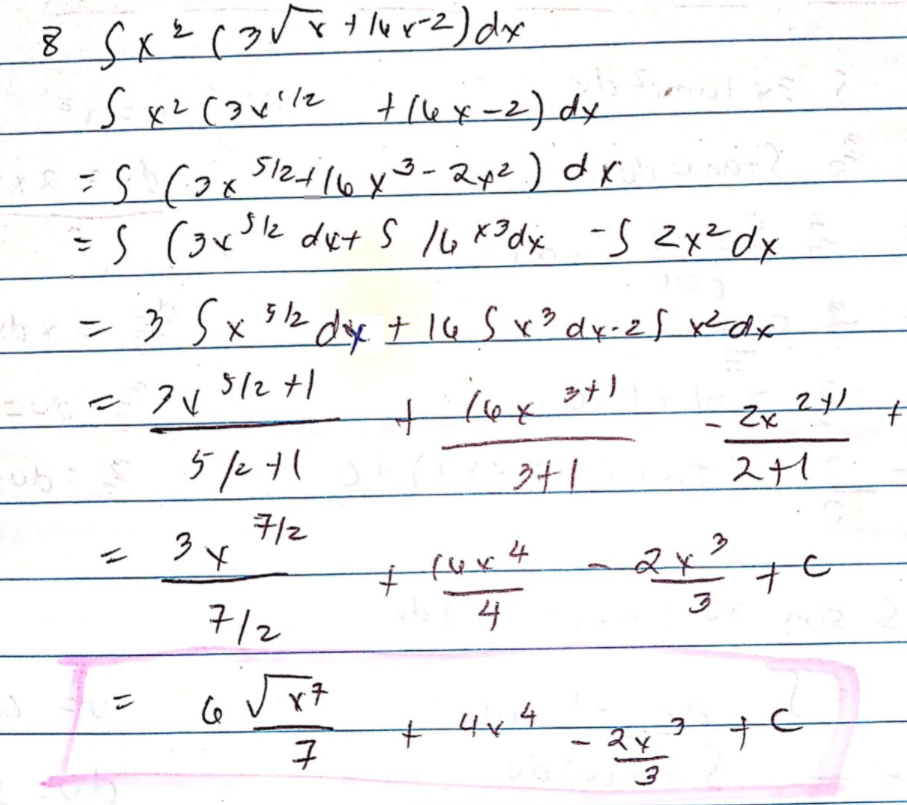 8 ∫ x² (3√x + 16x-2) dx
∫ x² (3x^1/2 + 16x - 2) dx
= ∫ (3x^5/2 + 16x³ - 2x²) dx
= ∫ (3x^5/2 dx + ∫ 16x³dx - ∫ 2x² dx
= 3 ∫ x^5/2 dx + 16 ∫ x³ dx - 2∫ x² dx
= 3x^5/2+1 / 5/2+1 + 16x^3+1 / 3+1 - 2x^2+1 / 2+1 +
= 3x^7/2 / 7/2 + 16x^4 / 4 - 2x³ / 3 + C
= 6√x^7 / 7 + 4x^4 - 2x³ / 3 + C